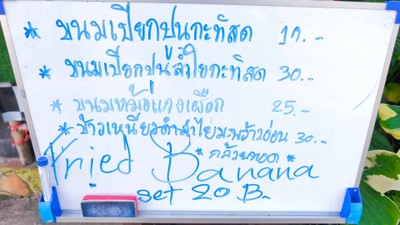 * ขนมเปียกปูนกะทิสด 17.-
* ขนมเปียกปูนลำไยกะทิสด 30.-
* ขนมหม้อแกงเผือก 25.-
* ข้าวเหนียวดำลำไยมะพร้าวอ่อน 30.-
* กล้วยทอด *
Fried Banana
set 20 B.-